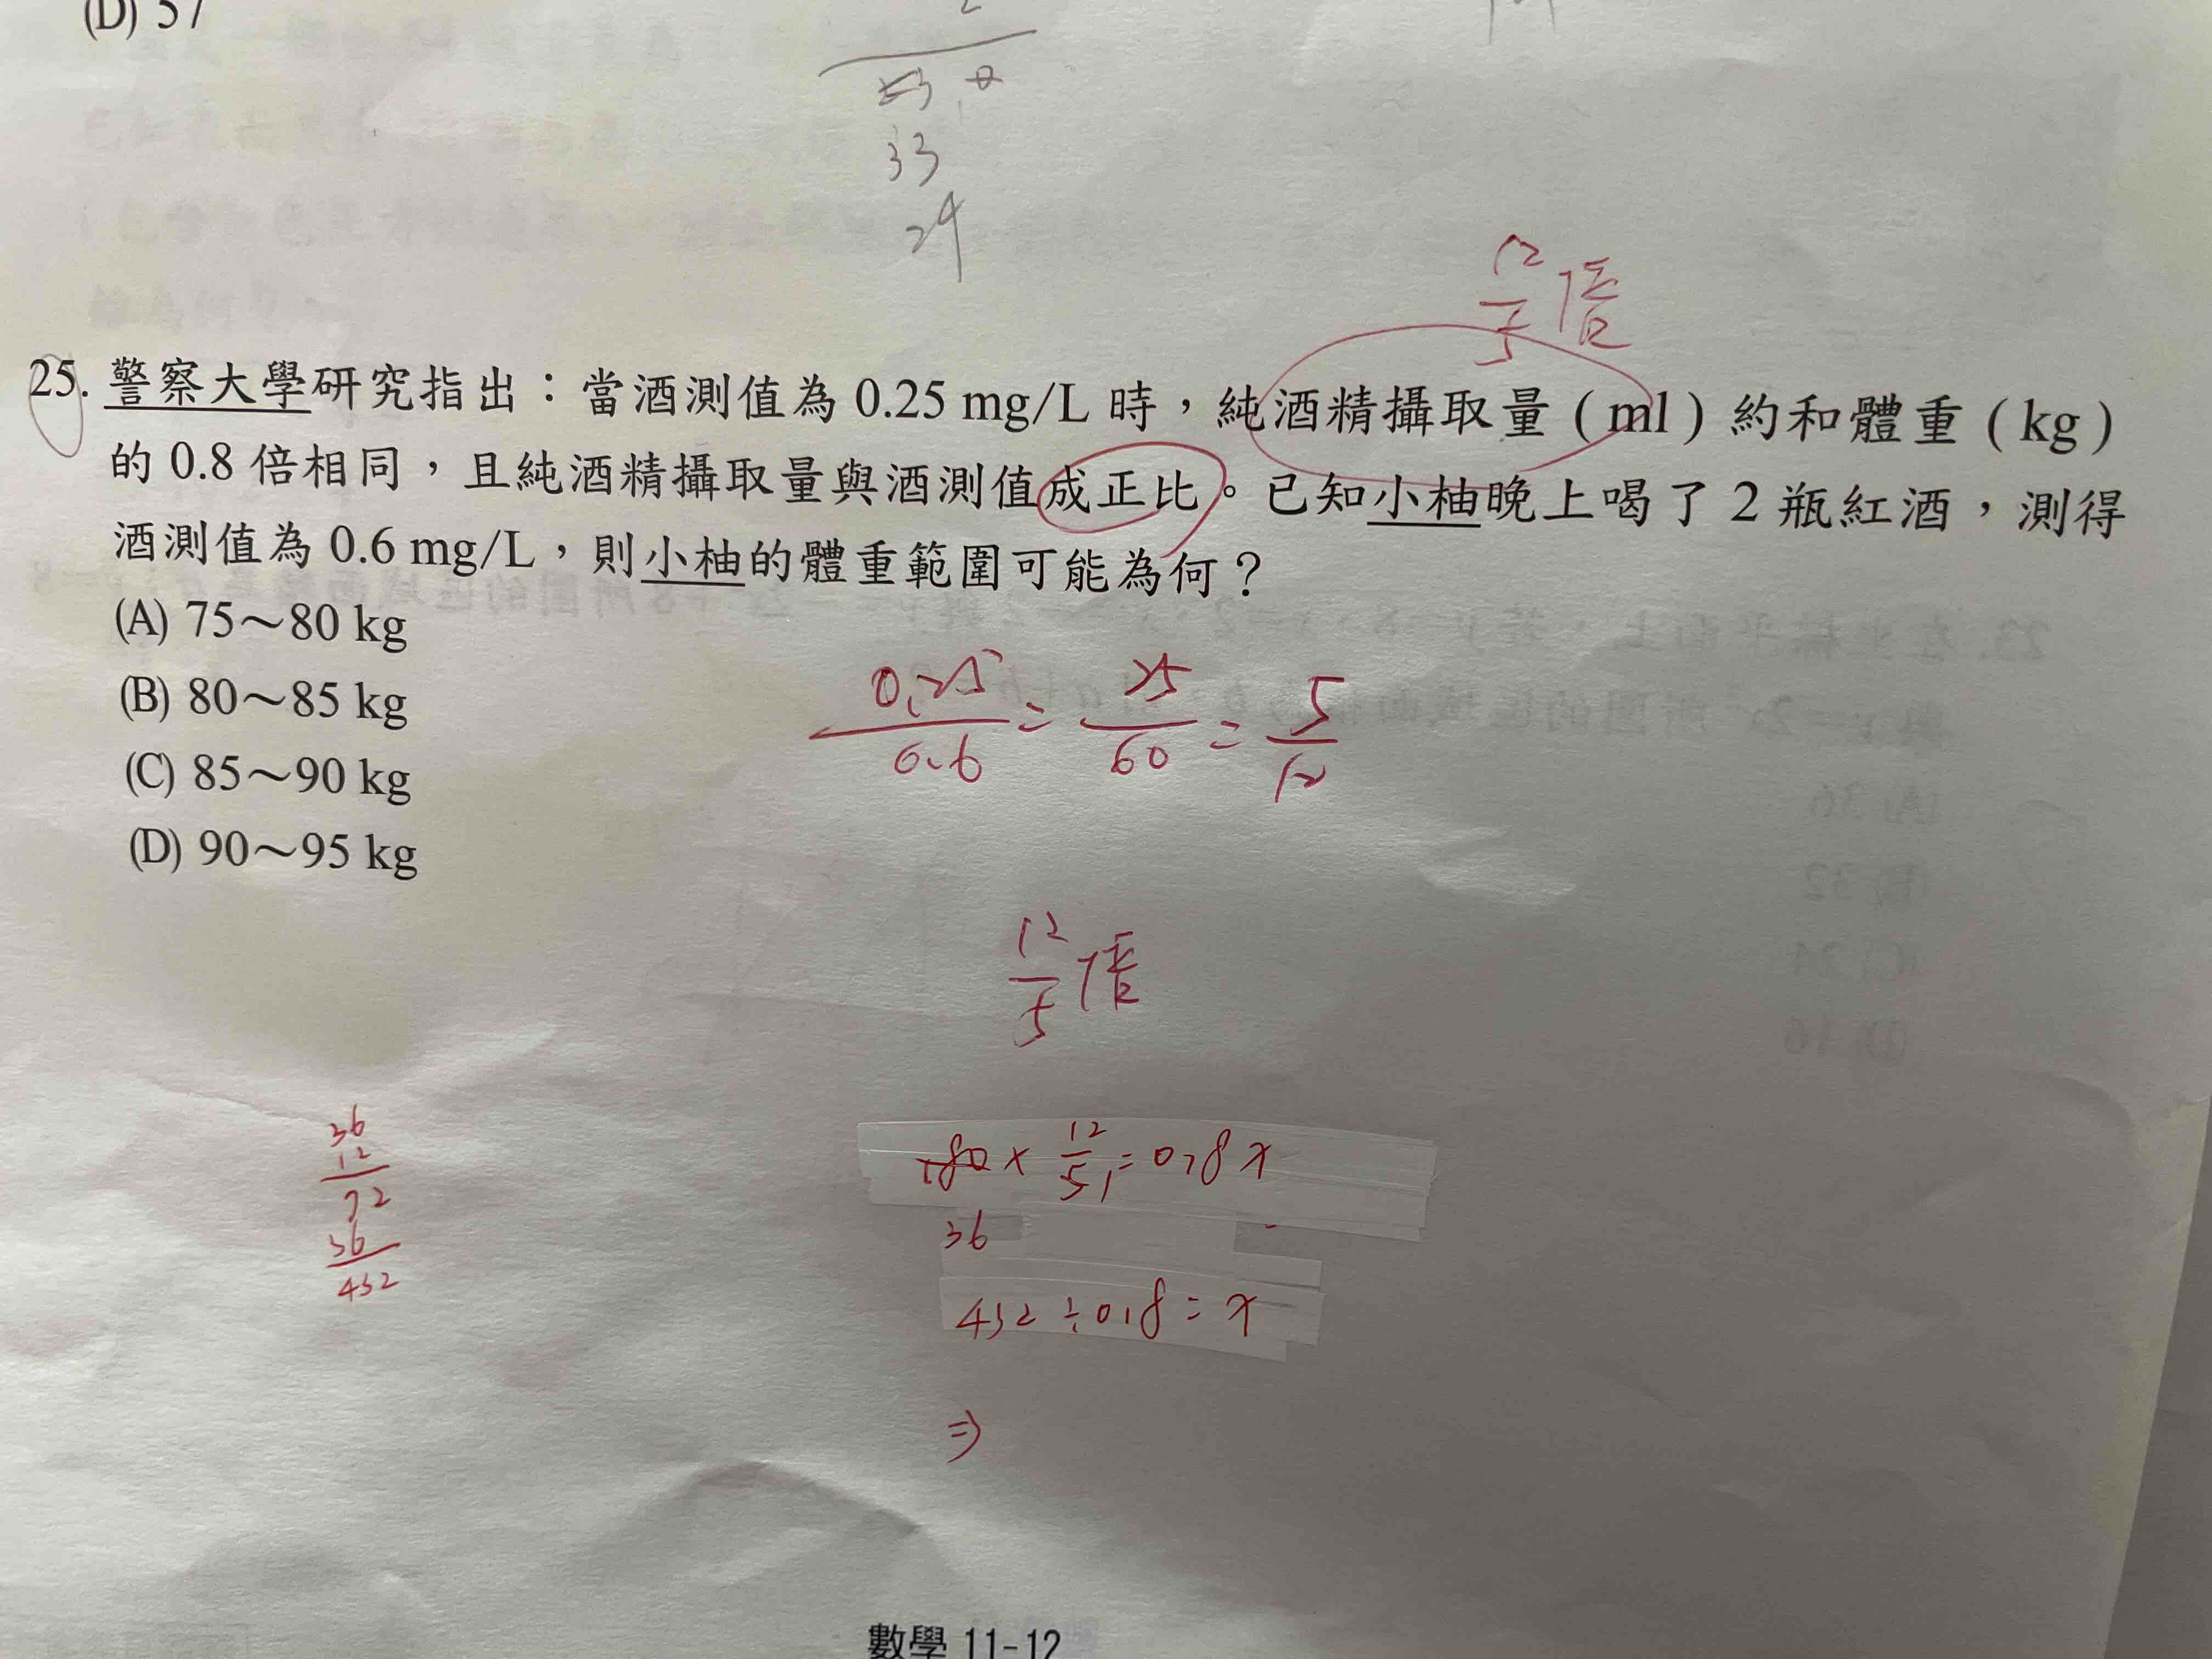 (D) 57
33
24
12
5 倍
25. 警察大學研究指出：當酒測值為 0.25 mg/L 時，純酒精攝取量（ml）約和體重（kg）
的 0.8 倍相同，且純酒精攝取量與酒測值成正比。已知小柚晚上喝了 2 瓶紅酒，測得
酒測值為 0.6 mg/L，則小柚的體重範圍可能為何？
(A) 75～80 kg
(B) 80～85 kg
(C) 85～90 kg
(D) 90～95 kg
0.25/0.6 = 25/60 = 5/12
12/5 倍
36
12
72
36
432
180 × 12/5 = 0.8x
36
432 ÷ 0.8 = x
⇒
數學 11-12